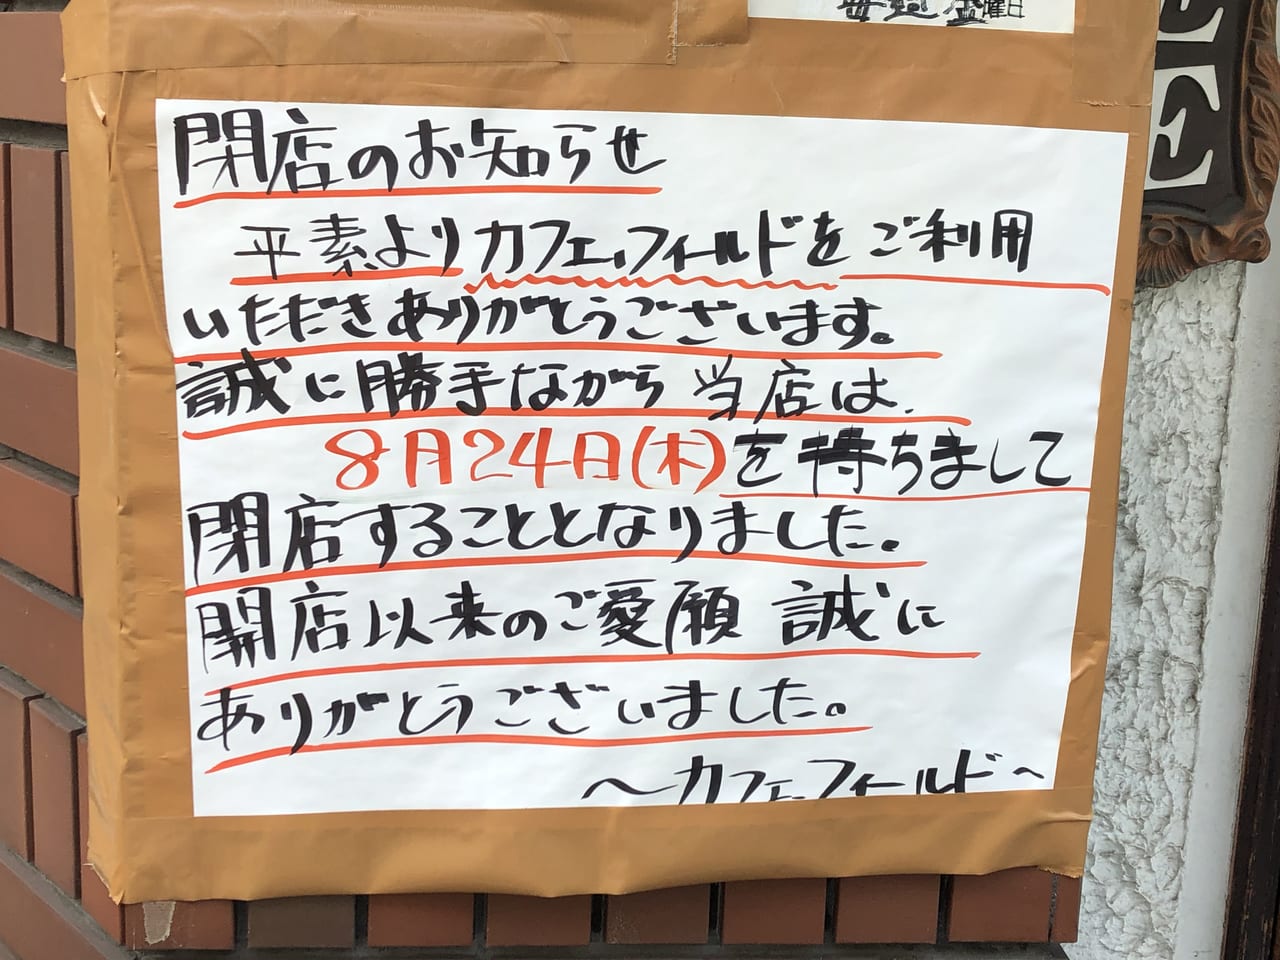 毎週 金曜日
E
E
閉店のお知らせ
平素よりカフェ、フィールドをご利用
いただきありがとうございます。
誠に勝手ながら 当店は、
8月24日(木)を持ちまして
閉店することとなりました。
開店以来のご愛願 誠に
ありがとうございました。
〜カフェ、フィールド〜